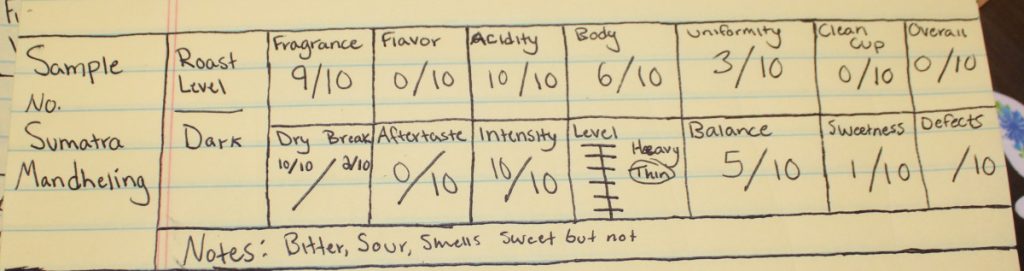 Sample No.
Roast Level
Fragrance 9/10
Flavor 0/10
Acidity 10/10
Body 6/10
Uniformity 3/10
Clean Cup 0/10
Overall 0/10
Sumatra Mandheling
Dark
Dry 10/10 Break 2/10
Aftertaste 0/10
Intensity 10/10
Level Heavy Thin
Balance 5/10
Sweetness 1/10
Defects /10
Notes: Bitter, Sour, Smells sweet but not